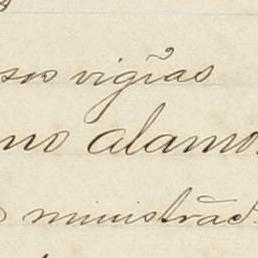 sos vigĩas
no alamo
ministrãd